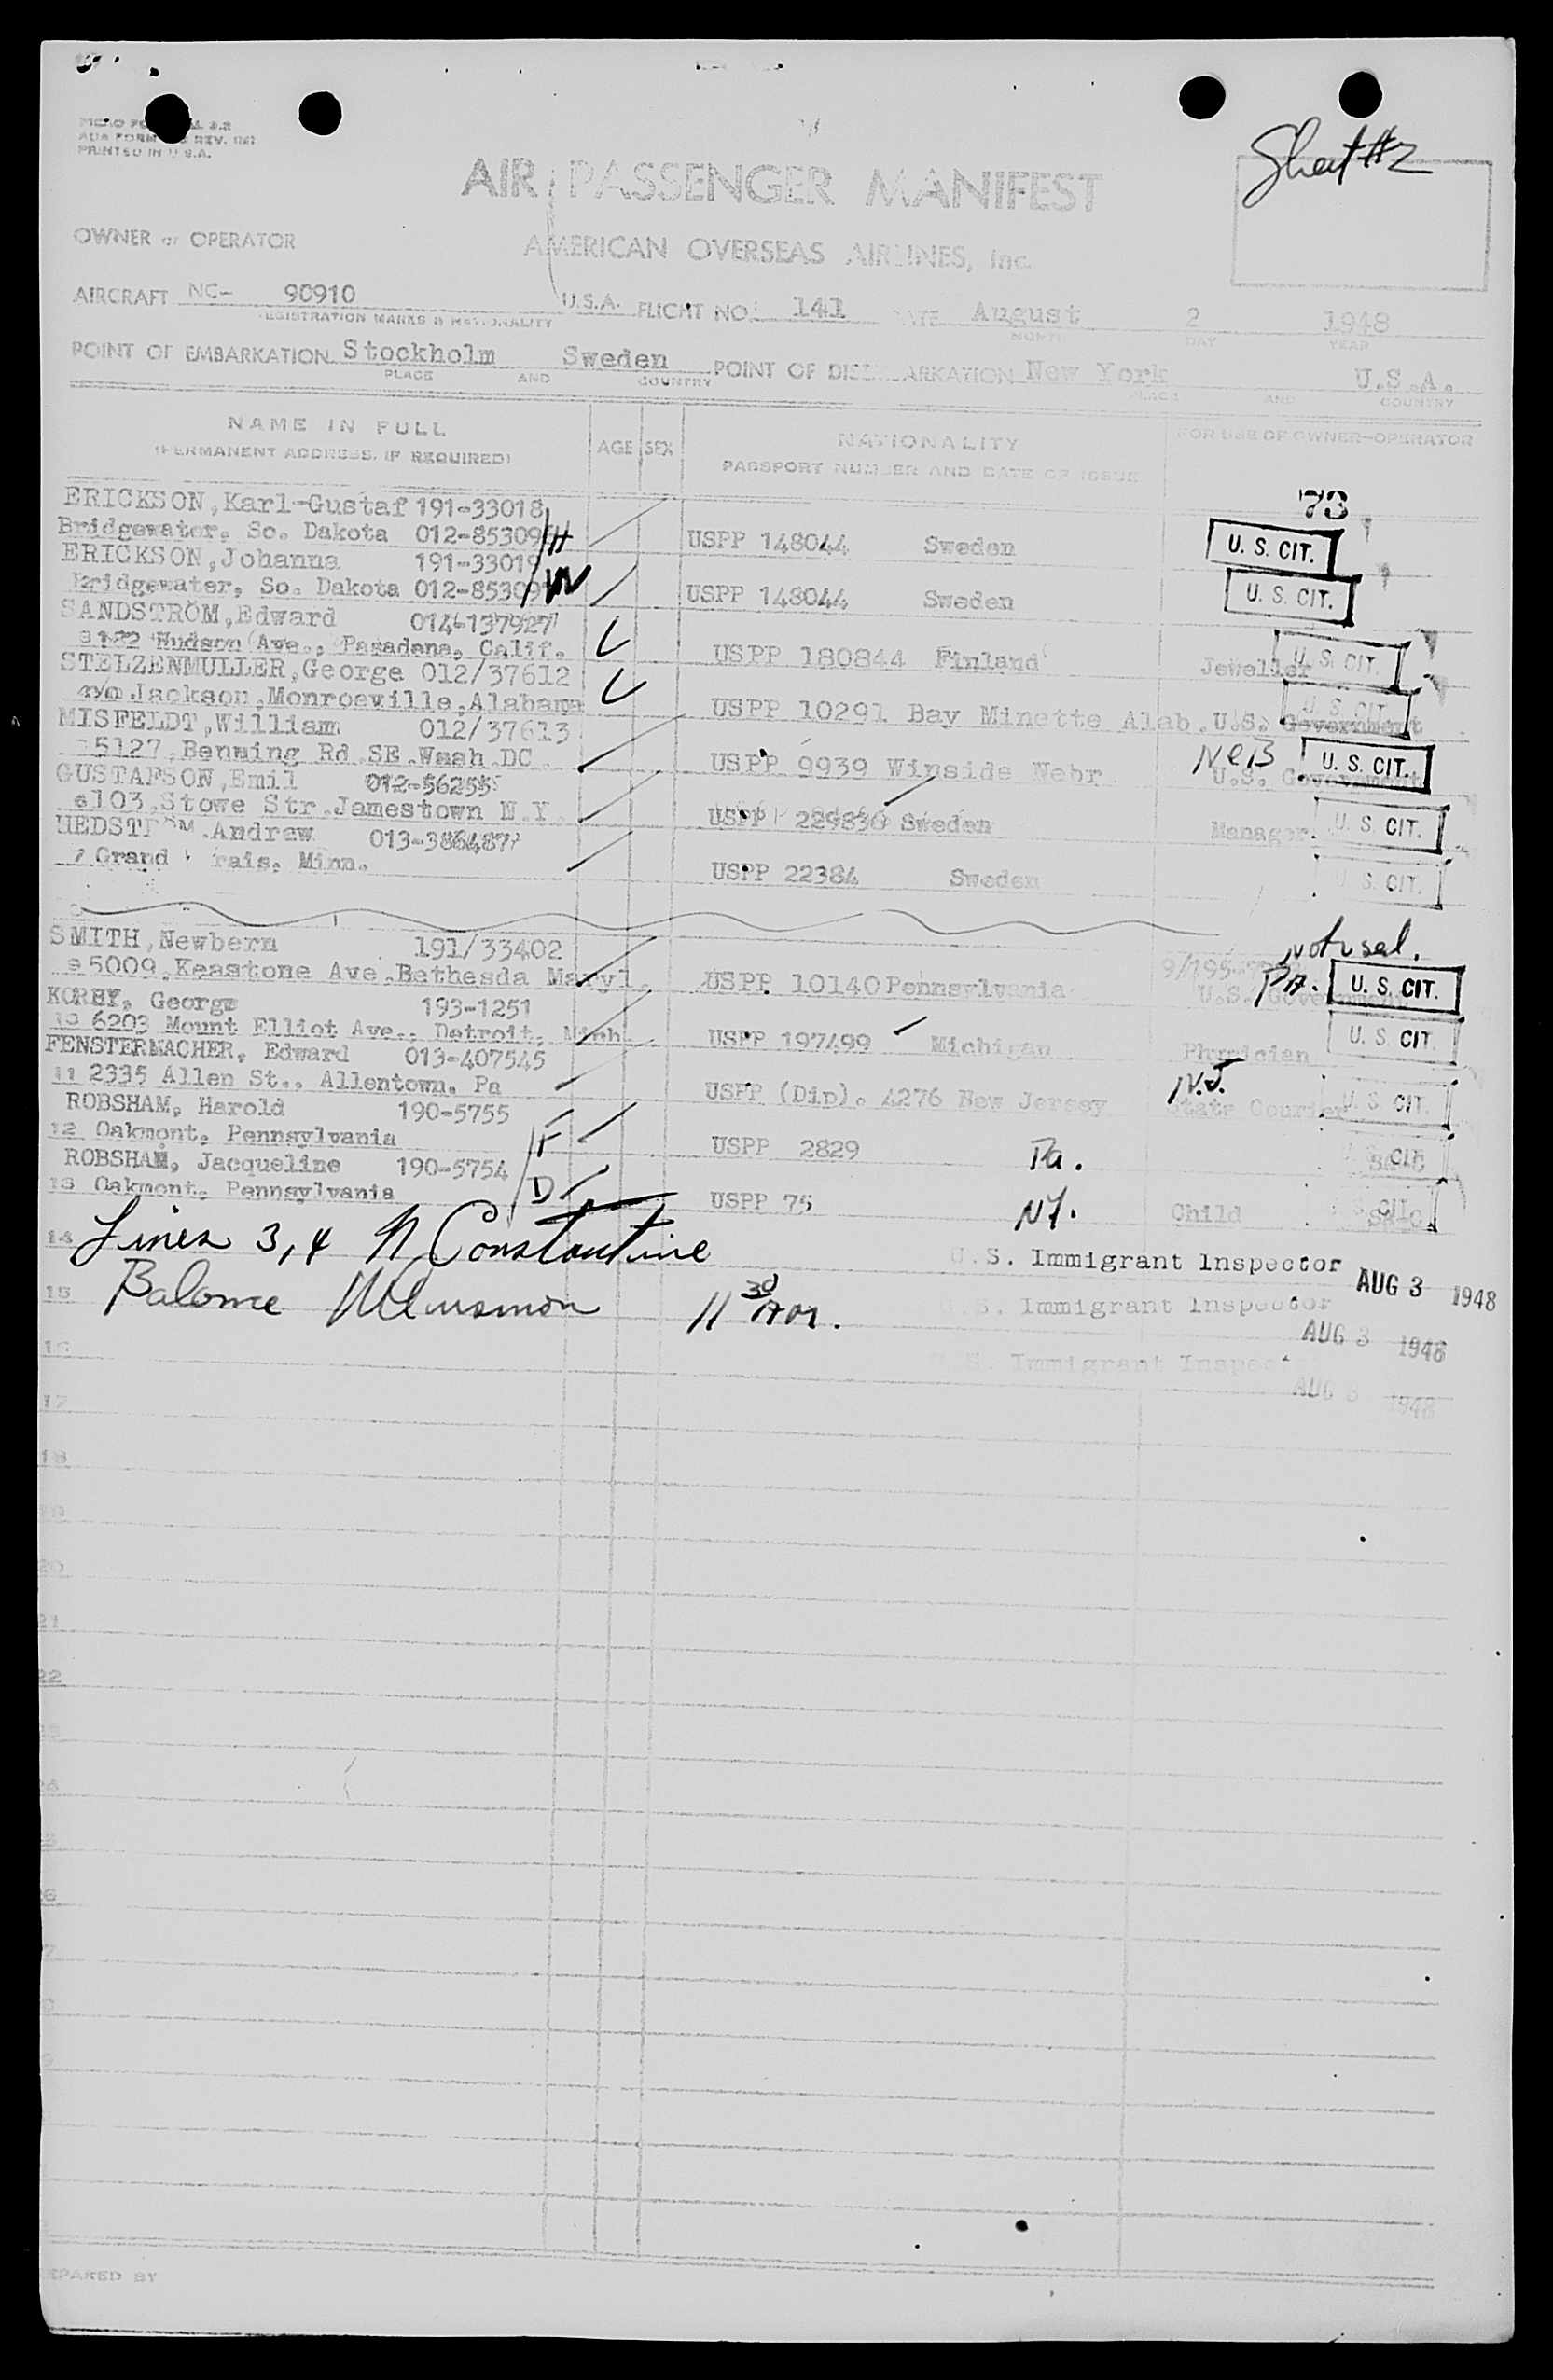 Sheet #2
PRINTED IN U.S.A.
AIR PASSENGER MANIFEST
OWNER or OPERATOR AMERICAN OVERSEAS AIRLINES, Inc.
AIRCRAFT NC- 90910 U.S.A. FLIGHT NO. 141 DATE August 2 1948
REGISTRATION MARKS & NATIONALITY MONTH DAY YEAR
POINT OF EMBARKATION Stockholm Sweden POINT OF DISEMBARKATION New York U.S.A.
PLACE AND COUNTRY PLACE AND COUNTRY
NAME IN FULL AGE SEX NATIONALITY FOR USE OF OWNER-OPERATOR
(PERMANENT ADDRESS, IF REQUIRED) PASSPORT NUMBER AND DATE OF ISSUE
73
ERICKSON, Karl-Gustaf 191-33018
Bridgewater, So. Dakota 012-85309 H USPP 148044 Sweden U. S. CIT.
ERICKSON, Johanna 191-33019
Bridgewater, So. Dakota 012-85309 W USPP 148044 Sweden U. S. CIT.
SANDSTRÖM, Edward 014-137927
Hudson Ave., Pasadena, Calif. USPP 180844 Finland Jeweller U. S. CIT.
STELZENMULLER, George 012/37612
Jackson, Monroeville, Alabama USPP 10291 Bay Minette Alab. U.S. Government U. S. CIT.
MISFELDT, William 012/37613
5127, Benning Rd SE. Wash DC USPP 9939 Winside Nebr NeB U.S. Government U. S. CIT.
GUSTAFSON, Emil 012-56255
103, Stowe Str. Jamestown N.Y. USPP 229830 Sweden Manager. U. S. CIT.
HEDSTRÖM, Andrew 013-386487
7 Grand Minn. USPP 22384 Sweden U. S. CIT.
SMITH, Newberm 191/33402
5009, Keastone Ave. Bethesda Maryl. USPP 10140 Pennsylvania PA. U.S. Government U. S. CIT.
KORBY, George 193-1251
10 6203 Mount Elliot Ave., Detroit, Mich USPP 197499 Michigan Physician U. S. CIT.
FENSTERMACHER, Edward 013-407545
11 2335 Allen St., Allentown, Pa USPP (Dip). 4276 New Jersey N.J. State Courier U. S. CIT.
ROBSHAM, Harold 190-5755
12 Oakmont, Pennsylvania F USPP 2829 Pa. CIT
ROBSHAM, Jacqueline 190-5754
13 Oakmont, Pennsylvania D USPP 75 NY. Child CIT
14 Lines 3, 4 N Constantine U.S. Immigrant Inspector AUG 3 1948
15 Balance 11 30 AM. U.S. Immigrant Inspector AUG 3 1948
16 U.S. Immigrant Inspector AUG 3 1948
17
18
19
20
21
22
PREPARED BY